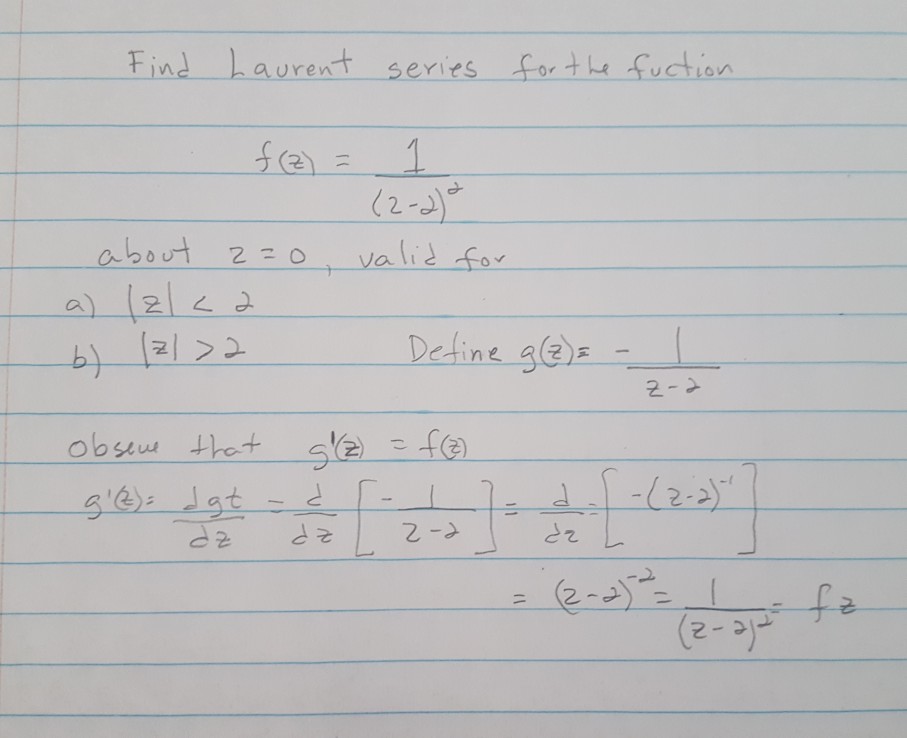 Find Laurent series for the fuction
f(z) = 1/(z-2)^2
about z = 0, valid for
a) |z| < 2
b) |z| > 2 Define g(z) = - 1/(z-2)
Obseve that g'(z) = f(z)
g'(z) = dgt/dz = d/dz [ - 1/(z-2) ] = d/dz = [ -(z-2)^-1 ]
= (z-2)^-2 = 1/(z-2)^2 = fz